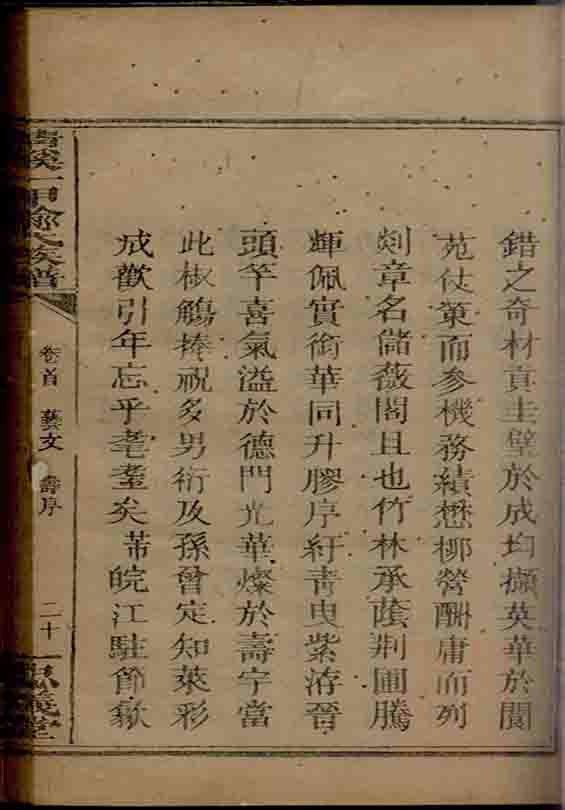 錯之奇材貢圭璧於成均擷英華於閬
苑仗策而参機務績懋柳營酬庸而列
剡章名儲薇閣且也竹林承蔭荆圃騰
輝佩實銜華同升膠序紆青曳紫洊晉
頭竿喜氣溢於德門光華燦於壽宇當
此椒觴捧祝多男衍及孫曾定知萊彩
戒歡引年忘乎耄耋矣芾皖江駐節歙
一甲俞氏族譜
卷首 藝文 壽序
二十一
義堂